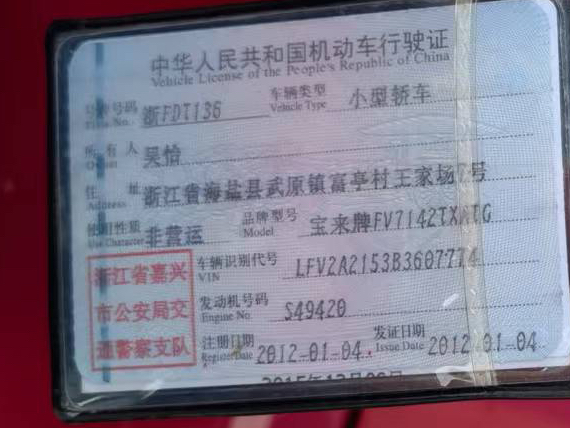 中华人民共和国机动车行驶证
Vehicle License of the People's Republic of China
号牌号码 浙FDT136 车辆类型 小型轿车
Plate No. Vehicle Type
所有人 吴怡
Owner
住址 浙江省海盐县武原镇富亭村王家场7号
Address
使用性质 非营运 品牌型号 宝来牌FV7142TXATG
Use Character Model
浙江省嘉兴
市公安局交
通警察支队
车辆识别代号 LFV2A2153B3607774
VIN
发动机号码 S49420
Engine No
注册日期 2012-01-04 发证日期 2012-01-04
Register Date Issue Date